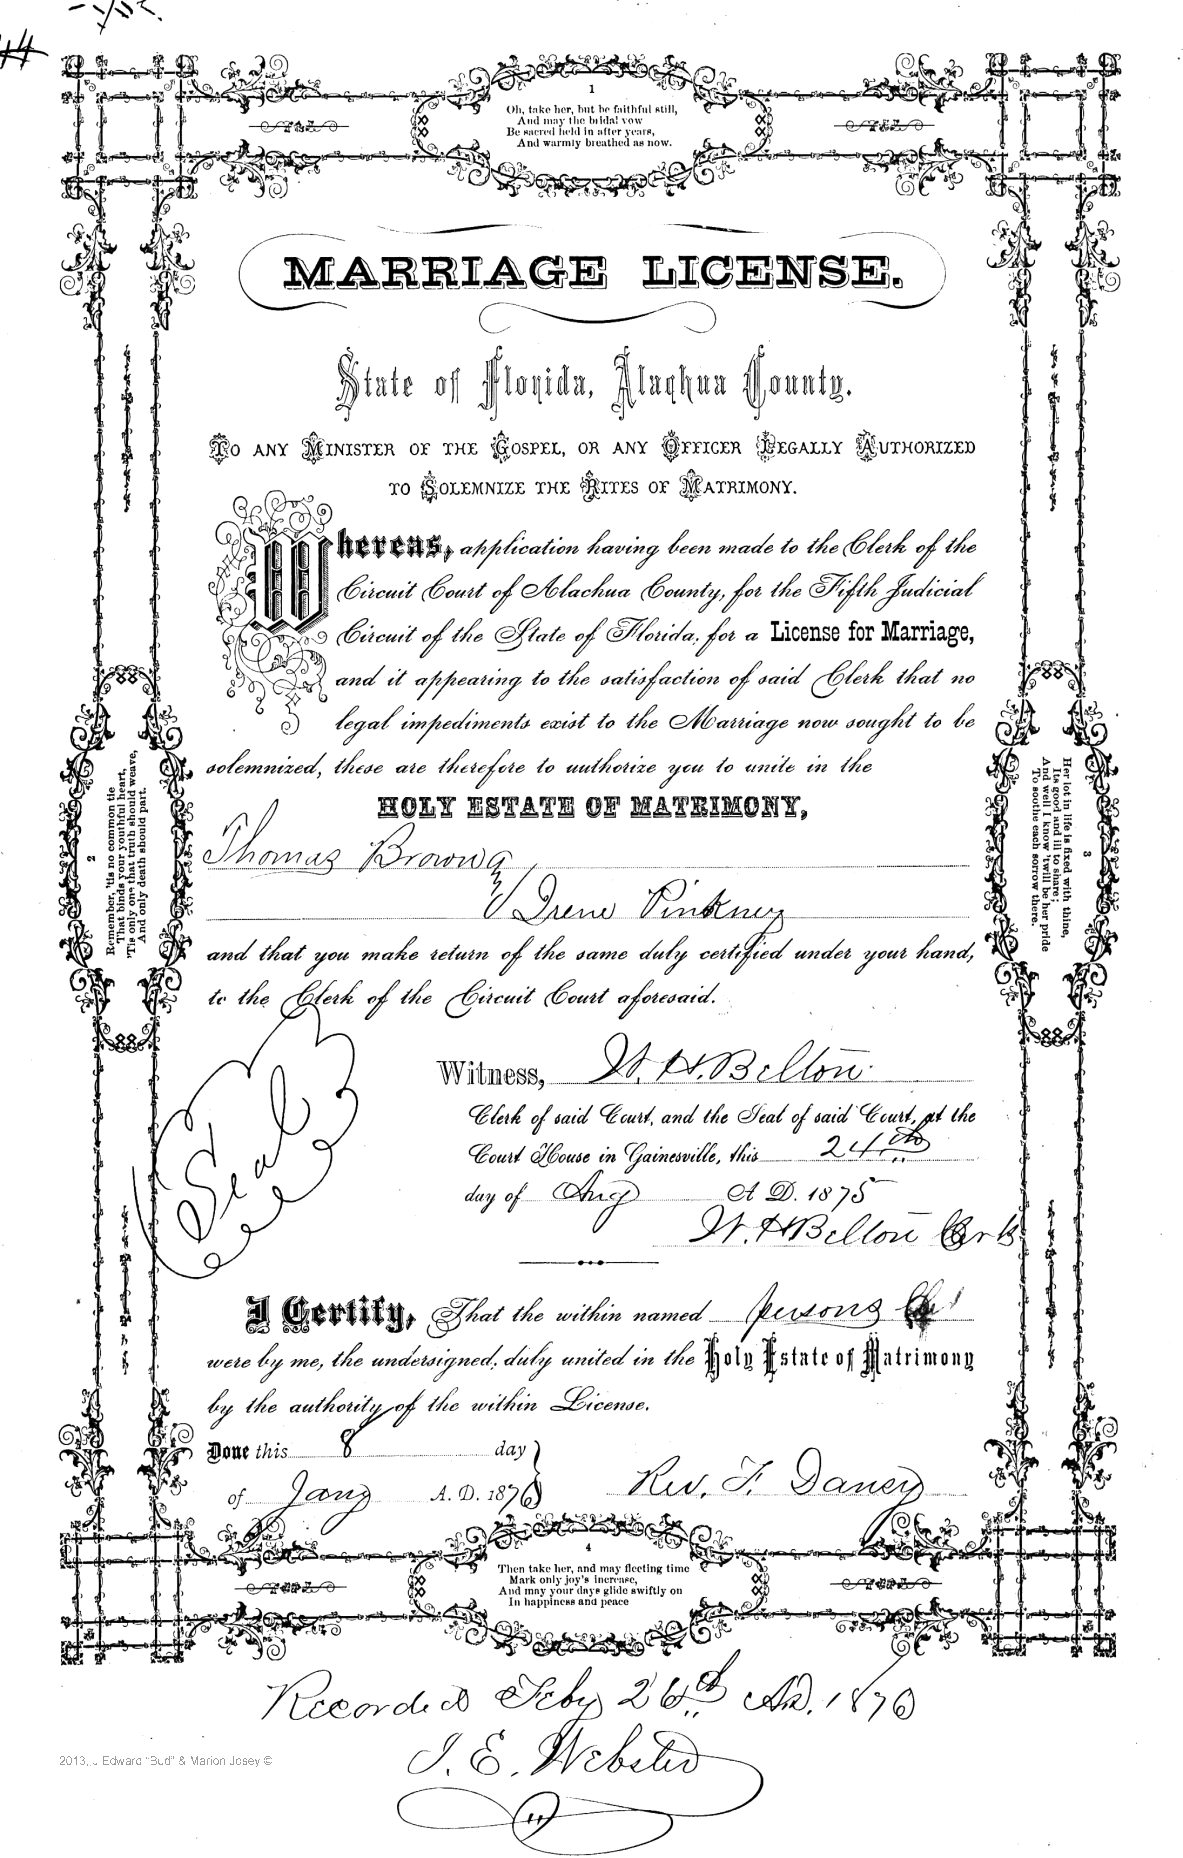 1
Oh, take her, but be faithful still,
And may the bridal vow
Be sacred held in after years,
And warmly breathed as now.
MARRIAGE LICENSE.
State of Florida, Alachua County.
To any Minister of the Gospel, or any Officer Legally Authorized
to Solemnize the Rites of Matrimony.
Whereas, application having been made to the Clerk of the
Circuit Court of Alachua County, for the Fifth Judicial
Circuit of the State of Florida, for a License for Marriage,
and it appearing to the satisfaction of said Clerk that no
legal impediments exist to the Marriage now sought to be
solemnized, these are therefore to authorize you to unite in the
HOLY ESTATE OF MATRIMONY,
Thomas Brown
& Irene Pinkney
and that you make return of the same duly certified under your hand,
to the Clerk of the Circuit Court aforesaid.
Seal
Witness, W. H. Belton
Clerk of said Court, and the Seal of said Court, at the
Court House in Gainesville, this 24th
day of Aug A D. 1875
W. H Belton Clerk
I Certify, That the within named persons
were by me, the undersigned, duly united in the Holy Estate of Matrimony
by the authority of the within License.
Done this 8 day
of Jany A. D. 1876
Rev. F. Daney
2
Remember, 'tis no common tie
That binds your youthful heart,
'Tis only one that truth should weave,
And only death should part.
3
Her lot in life is fixed with thine,
Its good and ill to share;
And well I know 'twill be her pride
To soothe each sorrow there.
4
Then take her, and may fleeting time
Mark only joy's increase,
And may your days glide swiftly on
In happiness and peace
Recorded Feby 26th AD. 1876
J. E. Webster
2013, J Edward "Bud" & Marion Josey ©